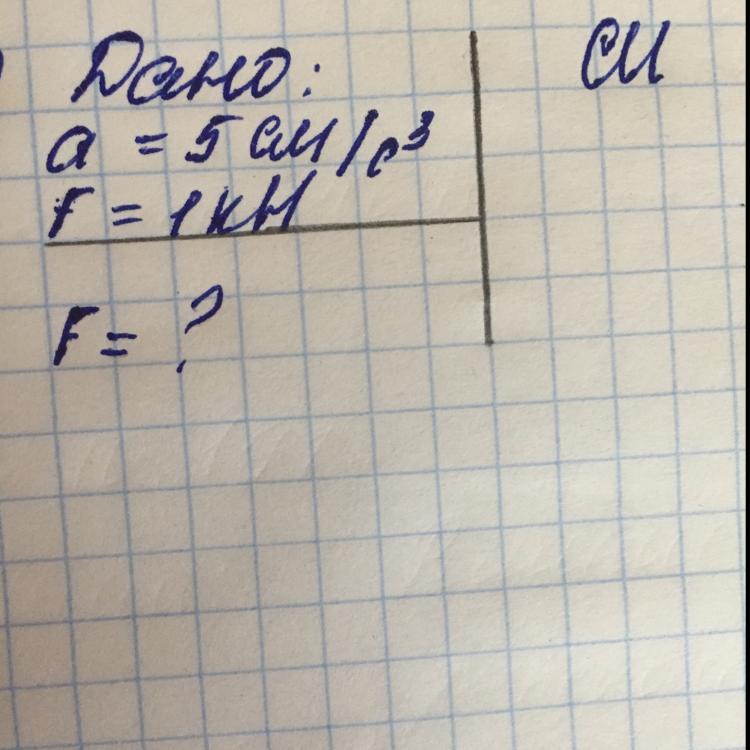 Дано:
СИ
a = 5 см/с³
F = 1 кН
F = ?